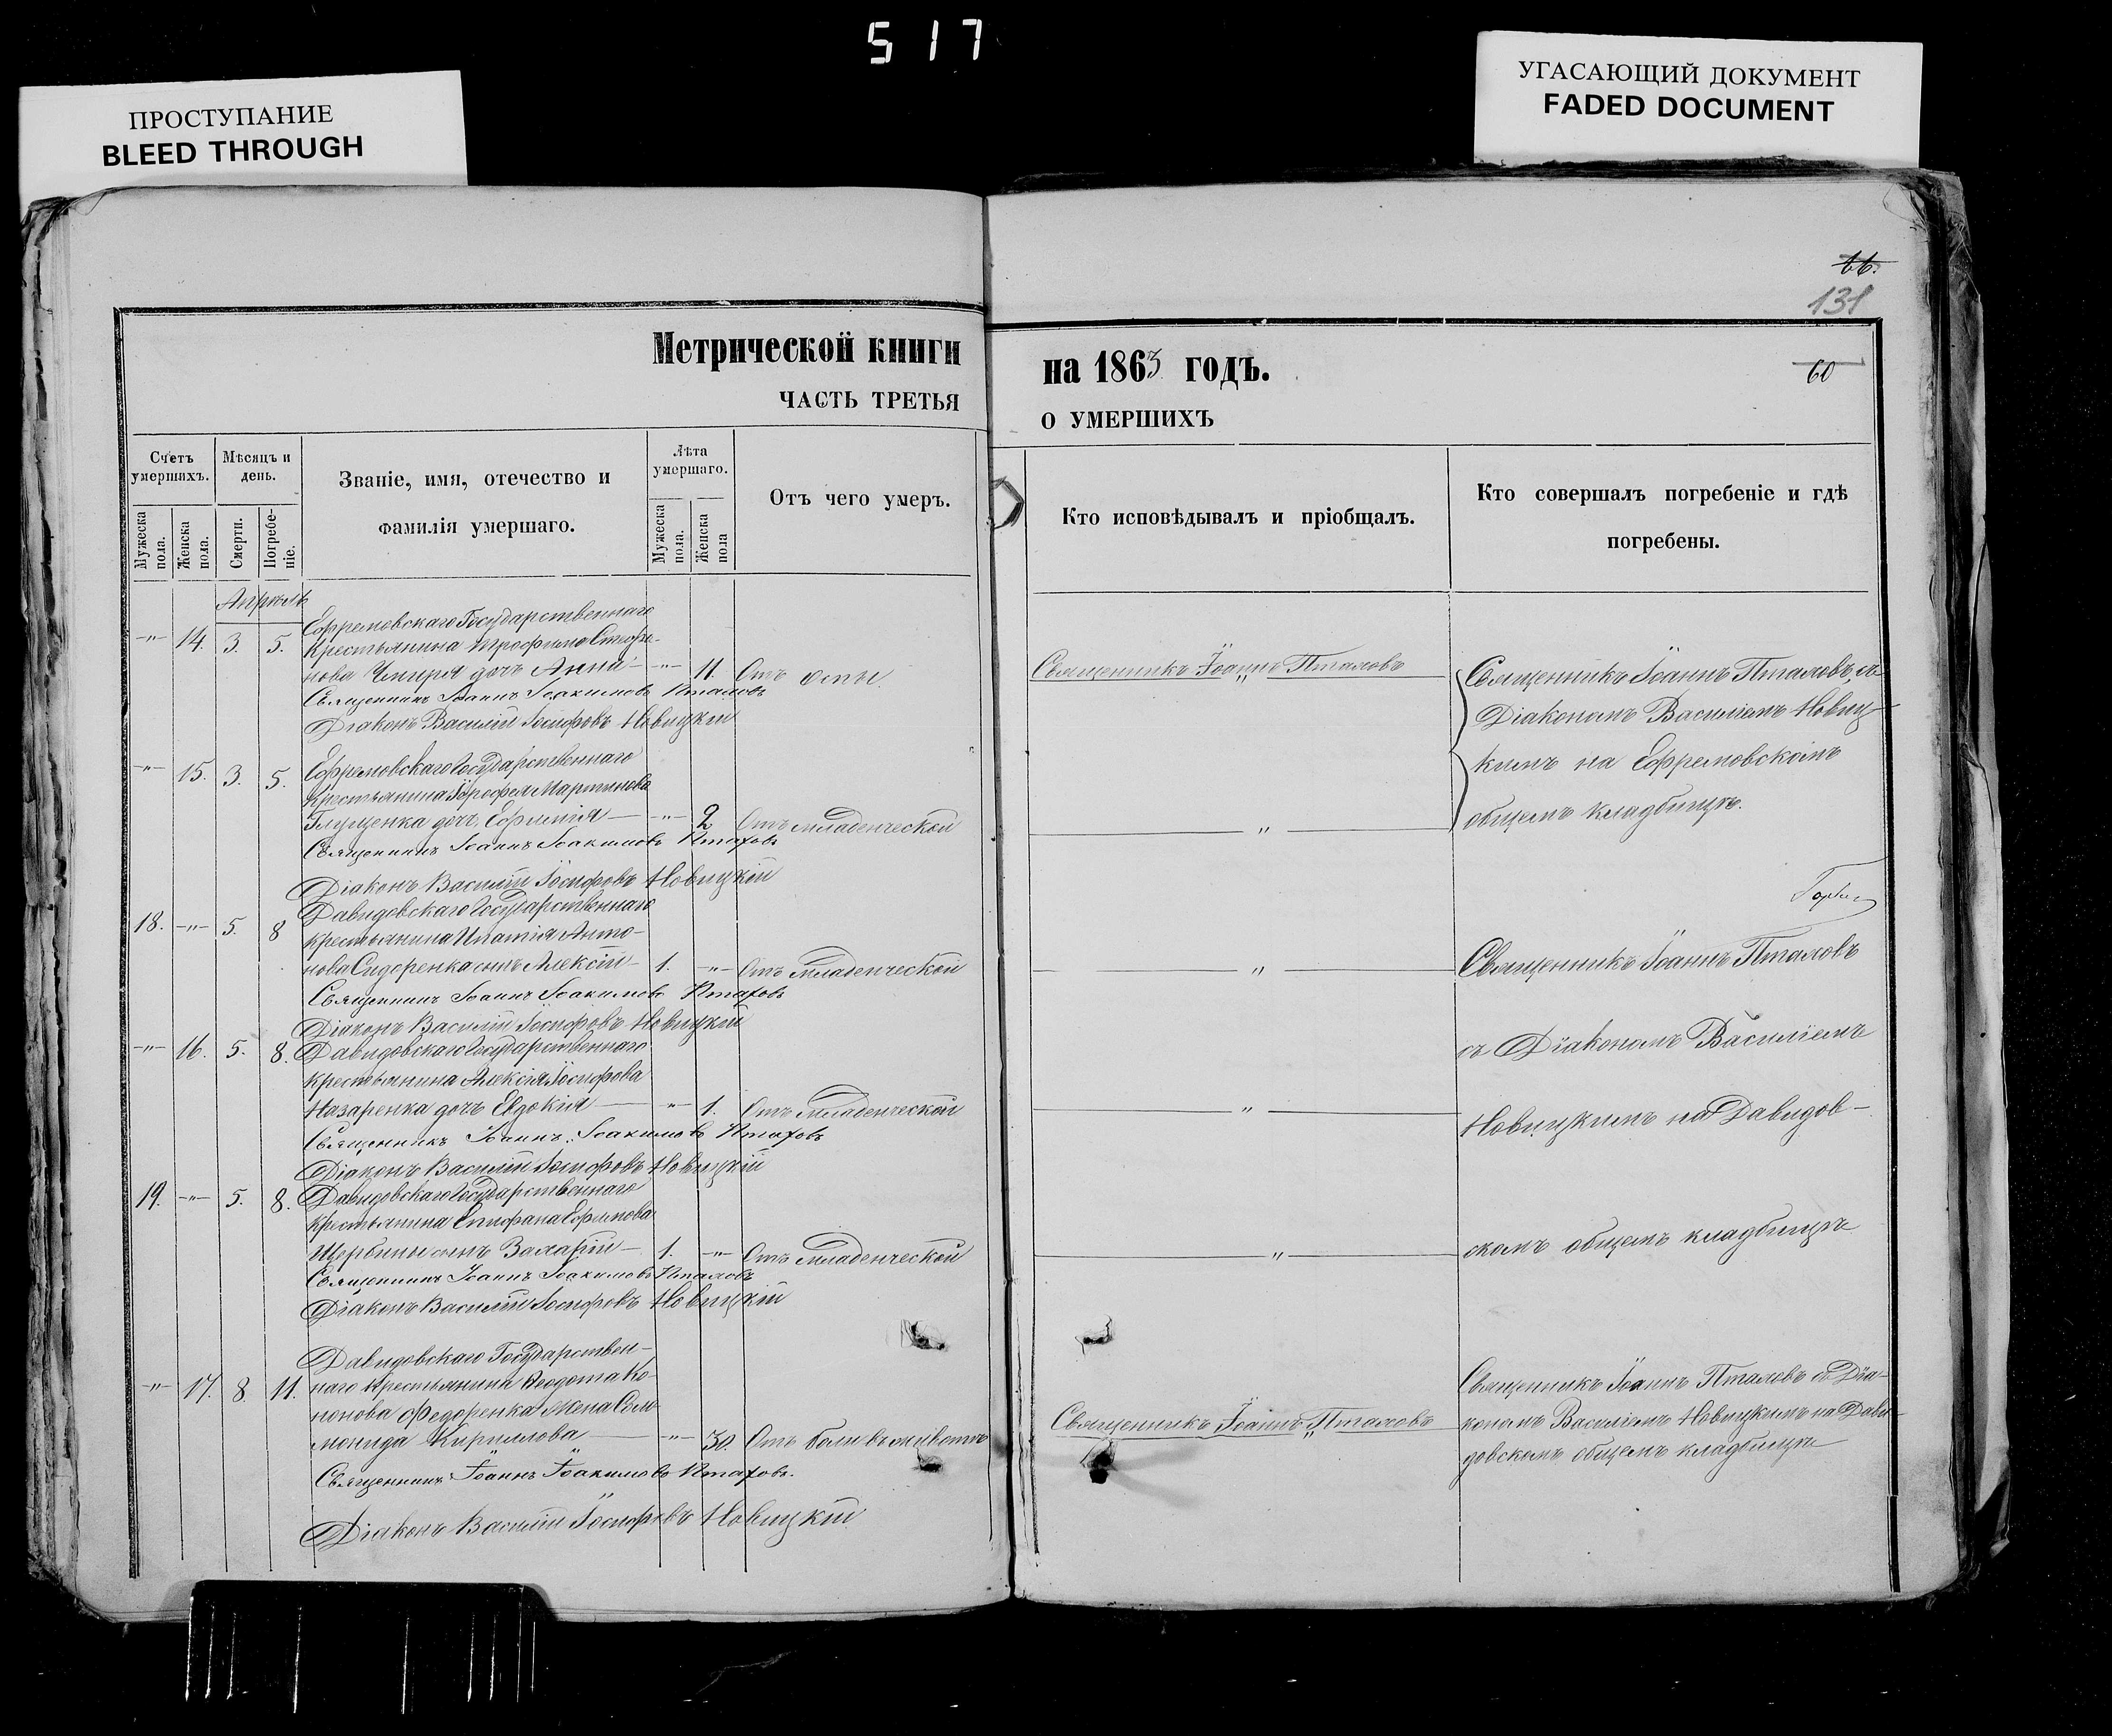 5 1 7
ПРОСТУПАНИЕ
BLEED THROUGH
УГАСАЮЩИЙ ДОКУМЕНТ
FADED DOCUMENT
66.
131
60
Метрической книги на 1863 годъ.
ЧАСТЬ ТРЕТЬЯ О УМЕРШИХЪ
Счетъ умершихъ.
Мужеска пола.
Женска пола.
Мѣсяцъ и день.
Смерти.
Погребеніе.
Званіе, имя, отечество и фамилія умершаго.
Лѣта умершаго.
Мужеска пола.
Женска пола
Отъ чего умеръ.
Кто исповѣдывалъ и пріобщалъ.
Кто совершалъ погребеніе и гдѣ погребены.
Апрѣль
Ефремовскаго Государственнаго
-"- 14. 3. 5. Крестьянина Трофима Стефа-
нова Чмиря дочь Анна -"- 11. Отъ оспы.
Священникъ Іоаннъ Іоакимовъ Пталовъ
Діаконъ Василій Іосифовъ Новицкій
Священникъ Іоаннъ Пталовъ
Священникъ Іоаннъ Пталовъ съ
Діакономъ Василіемъ Новиц-
кимъ на Ефремовскомъ
общемъ кладбищѣ.
-"- 15. 3. 5. Ефремовскаго Государственнаго
Крестьянина Іерофея Мартинова
Глущенка дочь Ефимія -"- 2 Отъ младенческой
Священникъ Іоаннъ Іоакимовъ Пталовъ
Діаконъ Василій Іосифовъ Новицкій
18. -"- 5. 8 Давидовскаго Государственнаго
крестьянина Ипатія Анто-
нова Сидоренка сынъ Алексій 1. -"- Отъ младенческой
Священникъ Іоаннъ Іоакимовъ Пталовъ
Діаконъ Василій Іосифовъ Новицкій
Священникъ Іоаннъ Пталовъ
съ Діакономъ Василіемъ
Новицкимъ на Давидов-
скомъ общемъ кладбищѣ
-"- 16. 5. 8. Давидовскаго Государственнаго
крестьянина Алексія Іосифова
Назаренка дочь Евдокія -"- 1. Отъ младенческой
Священникъ Іоаннъ Іоакимовъ Пталовъ
Діаконъ Василій Іосифовъ Новицкій
19. -"- 5. 8. Давидовскаго Государственнаго
крестьянина Епифана Ефимова
Щербины сынъ Захарій 1. -"- Отъ младенческой
Священникъ Іоаннъ Іоакимовъ Пталовъ
Діаконъ Василій Іосифовъ Новицкій
Давидовскаго Государствен-
-"- 17. 8. 11. наго крестьянина Феодота Ко-
нонова Федоренка жена Соло-
монида Кириллова -"- 30. Отъ боли въ животѣ
Священникъ Іоаннъ Іоакимовъ Пталовъ.
Діаконъ Василій Іосифовъ Новицкій
Священникъ Іоаннъ Пталовъ
Священникъ Іоаннъ Пталовъ съ Діа-
кономъ Василіемъ Новицкимъ на Дави-
довскомъ общемъ кладбищѣ